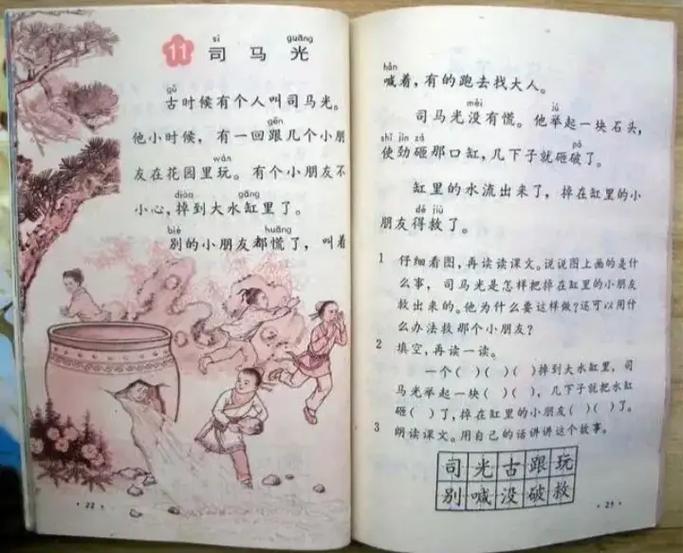 sī guāng
11 司马光
gǔ
古时候有个人叫司马光。
gēn
他小时候,有一回跟几个小朋
wán
友在花园里玩。有个小朋友不
diào gāng
小心,掉到大水缸里了。
bié huāng
别的小朋友都慌了,叫着
·22·
hǎn
喊着,有的跑去找大人。
méi jǔ
司马光没有慌。他举起一块石头,
shǐ jìn zá pò
使劲砸那口缸,几下子就砸破了。
缸里的水流出来了,掉在缸里的小
dé jiù
朋友得救了。
1 仔细看图,再读读课文。说说图上画的是什
么事,司马光是怎样把掉在缸里的小朋友
救出来的。他为什么要这样做?还可以用什
么办法救那个小朋友?
2 填空,再读一读。
一个( )( )( )掉到大水缸里,司
马光举起一块( )( ),几下子就把水缸
砸( )了,掉在缸里的小朋友( )( )了。
3 朗读课文。用自己的话讲讲这个故事。
司光古跟玩
别喊没破救